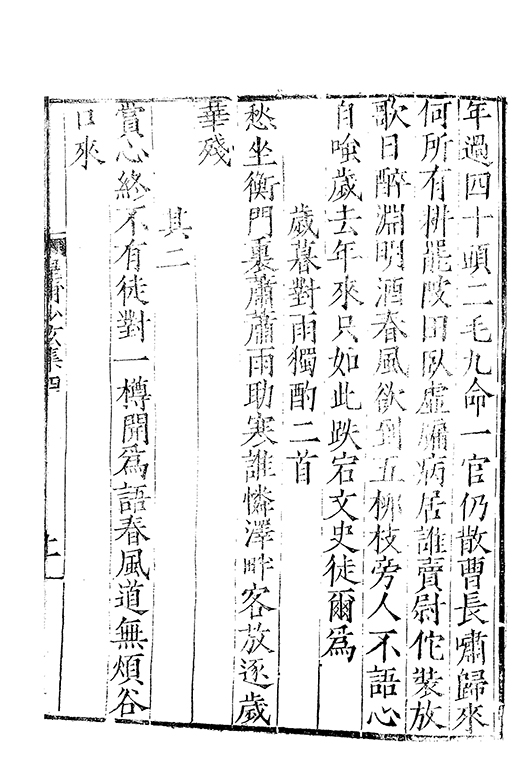 年過四十頭二毛九命一官仍散曹長嘯歸來
何所有耕罷陂田臥虛牖病居誰賣尉佗裝放
歌日醉淵明酒春風欲到五柳枝旁人不語心
自嗤歲去年來只如此跌宕文史徒爾爲
歲暮對雨獨酌二首
愁坐衡門裏蕭蕭雨助寒誰憐澤畔客放逐歲
華殘
其二
賞心終不有徒對一樽開爲語春風道無煩谷
口來
皇甫少玄集四